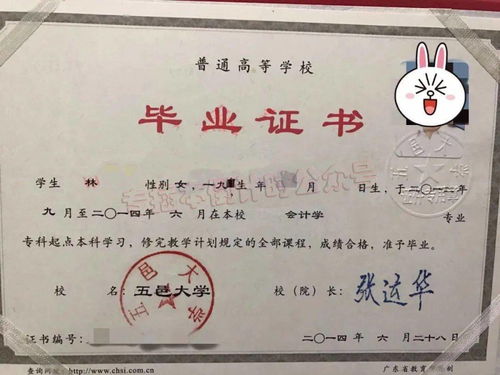 普通高等学校
毕业证书
学生 林 性别 女，一九 年 月 日生，于二〇一二年
九 月至二〇一四年 六 月在本校 会计学 专业
专科起点本科学习，修完教学计划规定的全部课程，成绩合格，准予毕业。
校 名：五邑大学 校（院）长：张运华
五邑大学
证书编号： 二〇一四年 六 月二十八日
查询网址：http://www.chsi.com.cn 广东省教育厅 制